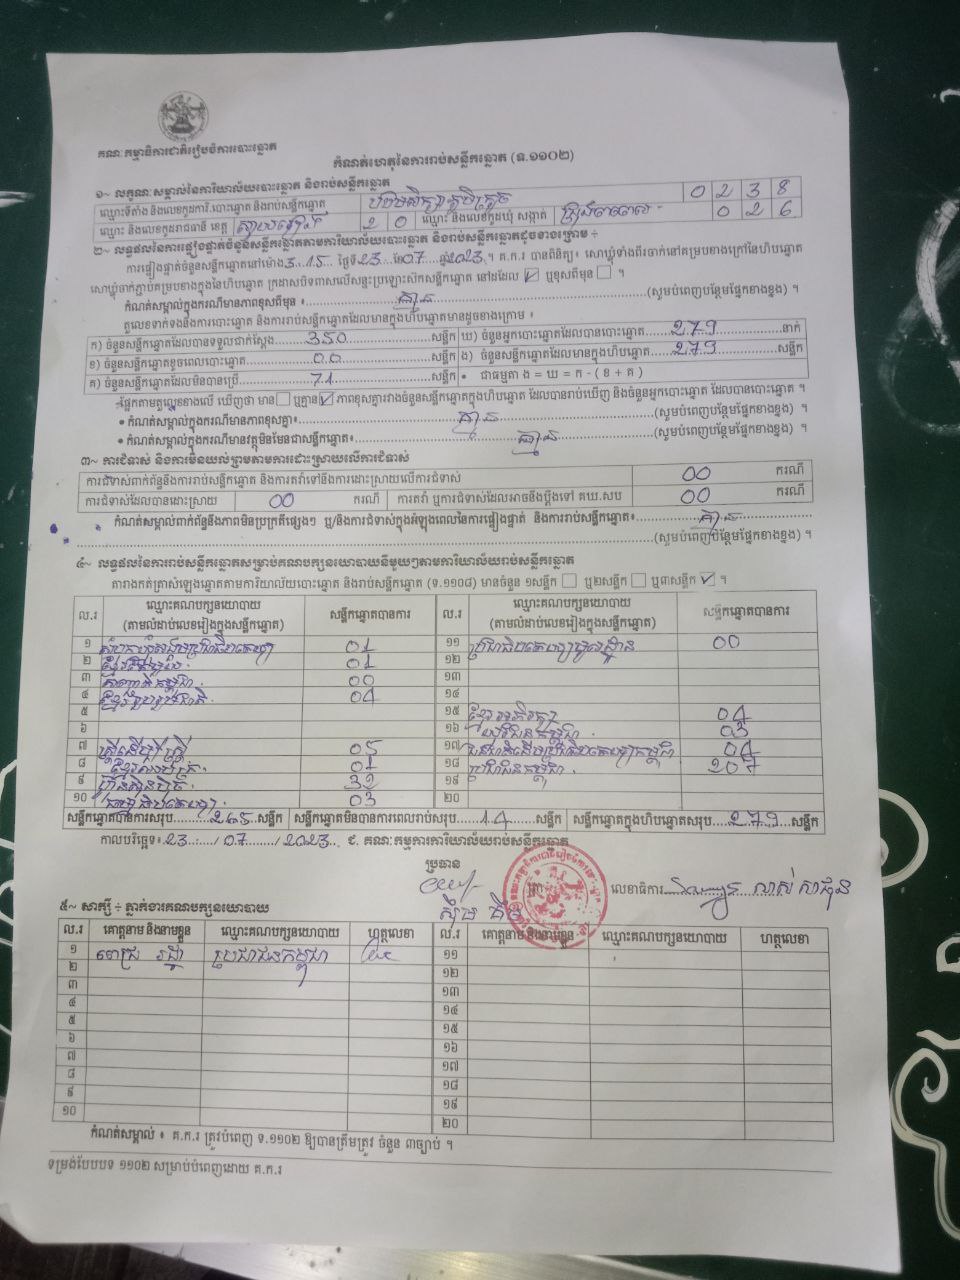 គណៈកម្មាធិការជាតិរៀបចំការបោះឆ្នោត
កំណត់ហេតុនៃការរាប់សន្លឹកឆ្នោត (ទ.១១០២)
១~ លក្ខណៈសម្គាល់នៃការិយាល័យបោះឆ្នោត និងរាប់សន្លឹកឆ្នោត
ឈ្មោះទីតាំង និងលេខកូដការិ.បោះឆ្នោត និងរាប់សន្លឹកឆ្នោត 0 2 3 8
ឈ្មោះ និងលេខកូដរាជធានី ខេត្ត ស្វាយរៀង 2 0 ឈ្មោះ និងលេខកូដឃុំ សង្កាត់ 0 2 6
២~ លទ្ធផលនៃការផ្ទៀងផ្ទាត់ចំនួនសន្លឹកឆ្នោតតាមការិយាល័យបោះឆ្នោត និងរាប់សន្លឹកឆ្នោតដូចខាងក្រោម ÷
ការផ្ទៀងផ្ទាត់ចំនួនសន្លឹកឆ្នោតនៅម៉ោង 3:15 ថ្ងៃទី 23 ខែ 07 ឆ្នាំ 2023 ។ គ.ក.រ បានពិនិត្យ ៖ សោឃ្មុំទាំងពីរចាក់នៅគម្របខាងក្រៅនៃហិបឆ្នោត
សោឃ្មុំចាក់ភ្ជាប់គម្របខាងក្នុងនៃហិបឆ្នោត ក្រដាសបិទពាសលើសន្ទះប្រឡោះស៊កសន្លឹកឆ្នោត នៅដដែល ☑ ឬខុសពីមុន ☐ ។
កំណត់សម្គាល់ក្នុងករណីមានភាពខុសពីមុន ៖ គ្មាន (សូមបំពេញបន្ថែមផ្នែកខាងខ្នង) ។
តួលេខទាក់ទងនឹងការបោះឆ្នោត និងការរាប់សន្លឹកឆ្នោតដែលមានក្នុងហិបឆ្នោតមានដូចខាងក្រោម ៖
ក) ចំនួនសន្លឹកឆ្នោតដែលបានទទួលជាក់ស្តែង 350 សន្លឹក ឃ) ចំនួនអ្នកបោះឆ្នោតដែលបានបោះឆ្នោត 279 នាក់
ខ) ចំនួនសន្លឹកឆ្នោតខូចពេលបោះឆ្នោត 00 សន្លឹក ង) ចំនួនសន្លឹកឆ្នោតដែលមានក្នុងហិបឆ្នោត 279 សន្លឹក
គ) ចំនួនសន្លឹកឆ្នោតដែលមិនបានប្រើ 71 សន្លឹក • ជាធម្មតា ង = ឃ = ក - ( ខ + គ )
-ផ្អែកតាមតួលេខខាងលើ ឃើញថា មាន ☐ ឬគ្មាន ☑ ភាពខុសគ្នារវាងចំនួនសន្លឹកឆ្នោតក្នុងហិបឆ្នោត ដែលបានរាប់ឃើញ និងចំនួនអ្នកបោះឆ្នោត ដែលបានបោះឆ្នោត ។
• កំណត់សម្គាល់ក្នុងករណីមានភាពខុសគ្នា៖ គ្មាន (សូមបំពេញបន្ថែមផ្នែកខាងខ្នង) ។
• កំណត់សម្គាល់ក្នុងករណីមានវត្ថុមិនមែនជាសន្លឹកឆ្នោត៖ គ្មាន (សូមបំពេញបន្ថែមផ្នែកខាងខ្នង) ។
៣~ ការជំទាស់ និងការមិនយល់ព្រមតាមការដោះស្រាយលើការជំទាស់
ការជំទាស់ពាក់ព័ន្ធនឹងការរាប់សន្លឹកឆ្នោត និងការតវ៉ាទៅនឹងការដោះស្រាយលើការជំទាស់ 00 ករណី
ការជំទាស់ដែលបានដោះស្រាយ 00 ករណី ការតវ៉ា ឬការជំទាស់ដែលអាចនឹងប្តឹងទៅ គឃ.សប 00 ករណី
កំណត់សម្គាល់ពាក់ព័ន្ធនឹងភាពមិនប្រក្រតីផ្សេងៗ ឬ/និងការជំទាស់ក្នុងអំឡុងពេលនៃការផ្ទៀងផ្ទាត់ និងការរាប់សន្លឹកឆ្នោត៖ គ្មាន
(សូមបំពេញបន្ថែមផ្នែកខាងខ្នង) ។
៤~ លទ្ធផលនៃការរាប់សន្លឹកឆ្នោតសម្រាប់គណបក្សនយោបាយនីមួយៗតាមការិយាល័យរាប់សន្លឹកឆ្នោត
តារាងកត់ត្រាសំឡេងឆ្នោតតាមការិយាល័យបោះឆ្នោត និងរាប់សន្លឹកឆ្នោត (ទ.១១០៨) មានចំនួន ១សន្លឹក ☐ ឬ២សន្លឹក ☐ ឬ៣សន្លឹក ☑ ។
ល.រ ឈ្មោះគណបក្សនយោបាយ (តាមលំដាប់លេខរៀងក្នុងសន្លឹកឆ្នោត) សន្លឹកឆ្នោតបានការ ល.រ ឈ្មោះគណបក្សនយោបាយ (តាមលំដាប់លេខរៀងក្នុងសន្លឹកឆ្នោត) សន្លឹកឆ្នោតបានការ
១ សំបុកឃ្មុំសង្គមប្រជាធិបតេយ្យ 01 ១១ ប្រជាធិបតេយ្យមូលដ្ឋាន 00
២ 01 ១២
៣ 00 ១៣
៤ ខ្មែររួបរួមជាតិ 04 ១៤
៥ ១៥ ខ្មែរអភិរក្ស 04
៦ ១៦ យុវជនកម្ពុជា 03
៧ ស្ត្រីដើម្បីស្ត្រី 05 ១៧ 04
៨ 01 ១៨ ប្រជាជនកម្ពុជា 207
៩ ហ៊្វុនស៊ិនប៉ិច 32 ១៩
១០ ធម្មាធិបតេយ្យ 03 ២០
សន្លឹកឆ្នោតបានការសរុប 265 សន្លឹក សន្លឹកឆ្នោតមិនបានការពេលរាប់សរុប 14 សន្លឹក សន្លឹកឆ្នោតក្នុងហិបឆ្នោតសរុប 279 សន្លឹក
កាលបរិច្ឆេទ៖ 23 / 07 / 2023 ជ. គណៈកម្មការការិយាល័យរាប់សន្លឹកឆ្នោត
ប្រធាន
លេខាធិការ
៥~ សាក្សី ÷ ភ្នាក់ងារគណបក្សនយោបាយ
ល.រ គោត្តនាម និងនាមខ្លួន ឈ្មោះគណបក្សនយោបាយ ហត្ថលេខា ល.រ គោត្តនាម និងនាមខ្លួន ឈ្មោះគណបក្សនយោបាយ ហត្ថលេខា
១ ប្រជាជនកម្ពុជា ១១
២ ១២
៣ ១៣
៤ ១៤
៥ ១៥
៦ ១៦
៧ ១៧
៨ ១៨
៩ ១៩
១០ ២០
កំណត់សម្គាល់ ៖ គ.ក.រ ត្រូវបំពេញ ទ.១១០២ ឱ្យបានត្រឹមត្រូវ ចំនួន ៣ច្បាប់ ។
ទម្រង់បែបបទ ១១០២ សម្រាប់បំពេញដោយ គ.ក.រ